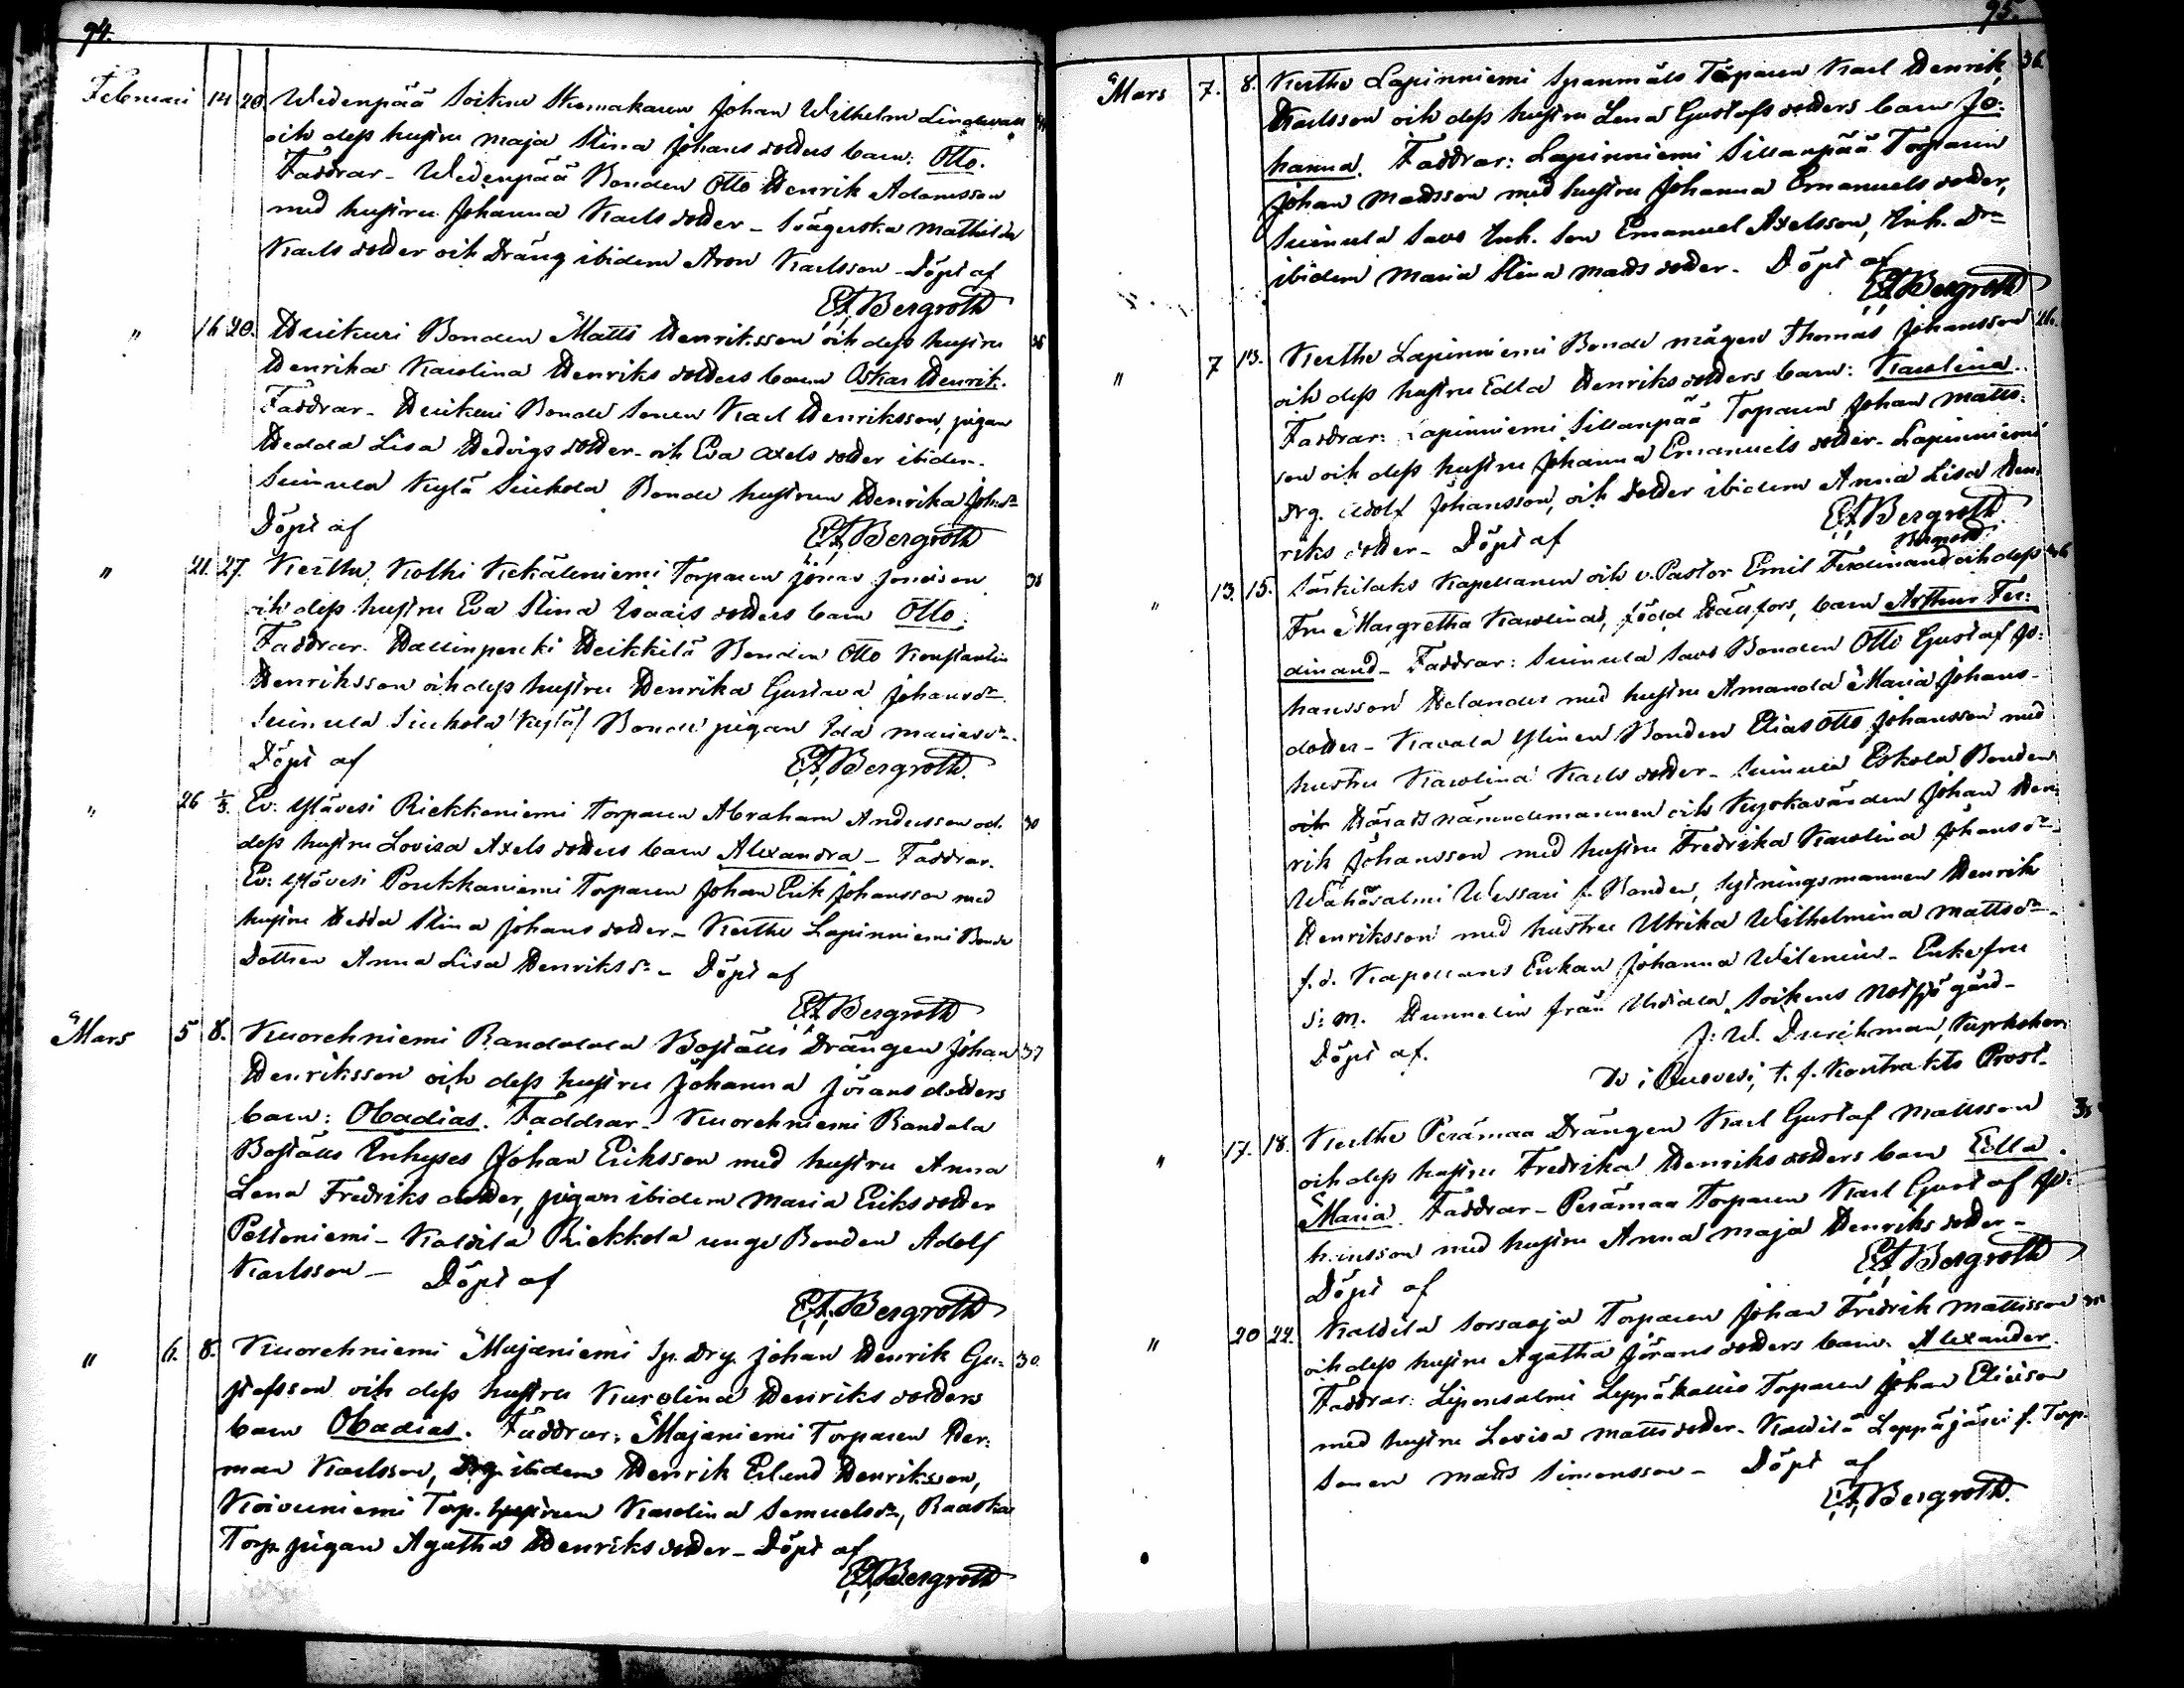 94.
Februari 14 20. Widenpää Soiknu Skomakaren Johan Wilhelm Lindwall
och dess hustru Maja Stina Johans dotters barn: Otto.
Faddrar - Widenpää Bonden Otto Henrik Adamsson
med hustru Johanna Karls dotter - Svägerska Mathilda
Karls dotter och Dräng ibidem Aron Karlsson - Döpt af
E F Bergroth
" 16 20. Bonden Matts Henriksson och dess hustru 36
Henrika Karolina Henriks dotters barn Oskar Henrik.
Faddrar - Bonde Sonen Karl Henriksson, pigan
Hedda Lisa Hedvigs dotter - och Eva Axels dotter ibidem.
Suinula Kylä Siukola Bonde hustrun Henrika Johsdr
Döpt af E F Bergroth
" 21. 27. Kertthe Kolhi Kekäleniemi Torparen Jonas Jonasson 38
och dess hustru Eva Stina Isaaks dotters barn Otto.
Faddrar - Hallinpenki Heikkilä Bonden Otto Konstantin
Henriksson och dess hustru Henrika Gustava Johansdr.
Suinula Siukola (Kylä) Bonde pigan Ida Mariasdr.
Döpt af E F Bergroth.
" 26 1/3. Ev: Ylävesi Riekkeniemi Torparen Abraham Andersson och 30
dess hustru Lovisa Axels dotters barn Alexandra - Faddrar.
Ev: Ylävesi Poukkaniemi Torparen Johan Erik Johansson med
hustru Hedda Stina Johans dotter - Kertthe Lapinniemi Bonde
Dottren Anna Lisa Henriksdr - Döpt af
E F Bergroth
Mars 5 8. Kuorehniemi Randalala Boställs Drängen Johan 37
Henriksson och dess hustru Johanna Jörans dotters
barn: Obadias. Faddrar - Kuorehniemi Randala
Boställs Inhyses Johan Eriksson med hustru Anna
Lena Fredriks dotter, pigan ibidem Maria Eriks dotter
Peltoniemi - Kaldila Riekkola unge Bonden Adolf
Karlsson - Döpt af
E F Bergroth
" 6. 8. Kuorehniemi Majaniemi Sp. Drg. Johan Henrik Gu- 30.
stafsson och dess hustru Karolina Henriks dotters
barn Obadias. Faddrar: Majaniemi Torparen Her-
man Karlsson, Drg. ibidem Henrik Erlund Henriksson,
Koivuniemi Torp. hustrun Karolina Samuelsdr, Raaska
Torp. pigan Agatha Henriks dotter - Döpt af
E F Bergroth
95.
Mars 7. 8. Kertthe Lapinniemi Spannmåls Torparen Karl Henrik 36.
Karlsson och dess hustru Lena Gustafs dotters barn Jo-
hanna. Faddrar: Lapinniemi Sillanpää Torparen
Johan Mattsson med hustru Johanna Emanuels dotter,
Suinula Savo Inh. Son Emanuel Axelsson, Inh. Dr
ibidem Maria Stina Matts dotter - Döpt af
E F Bergroth
" 7 13. Kertthe Lapinniemi Bonde mågen Thomas Johansson 26.
och dess hustru Edla Henriks dotters barn: Karolina.
Faddrar: Lapinniemi Sillanpää Torparen Johan Matts-
son och dess hustru Johanna Emanuels dotter - Lapinniemi
Drg. Adolf Johansson, och dotter ibidem Anna Lisa Hen-
riks dotter - Döpt af E F Bergroth
" 13. 15. Särkilaks Kapellanen och v. Pastor Emil Ferdinand och dess
Fru Margretha Karolina, född Hällfors, barn Arthur Fer-
dinand - Faddrar: Suinula Savo Bonden Otto Gustaf Jo-
hansson Helander med hustru Amanda Maria Johans-
dotter - Kavala Ylinen Bonden Elias Otto Johansson med
hustru Karolina Karls dotter - Suinula Eskola Bonden
och Häradsnämndemannen och Kyrkovärden Johan Hen-
rik Johansson med hustru Fredrika Karolina Johansdr -
Wähäsalmi Wessari f. Bonden, Sytningsmannen Henrik
Henriksson med hustru Ulrika Wilhelmina Mattsdr -
f. d. Kapellans Enkan Johanna Wilenius - Enkefru
S: M. Hunnelin från Urdiala Sockens Notsjö gård -
Döpt af. J: W. Durchman, Kyrkoher-
de i Ruovesi, t. f. Kontrakts Prost.
" 17. 18. Kertthe Perämaa Drängen Karl Gustaf Mattsson 38
och dess hustru Fredrika Henriks dotters barn Edla
Maria. Faddrar - Perämaa Torparen Karl Gustaf Jo-
hansson med hustru Anna Maja Henriks dotter -
Döpt af E F Bergroth
" 20 22. Kaldila Sorsaoja Torparen Johan Fredrik Mattsson
och dess hustru Agatha Jörans dotters barn Alexander.
Faddrar: Liponsalmi Leppäkallio Torparen Johan Eliasson
med hustru Lovisa Matts dotter - Kaldila Leppäjärvi f. Torp.
Sonen Matts Simonsson - Döpt af
E F Bergroth.